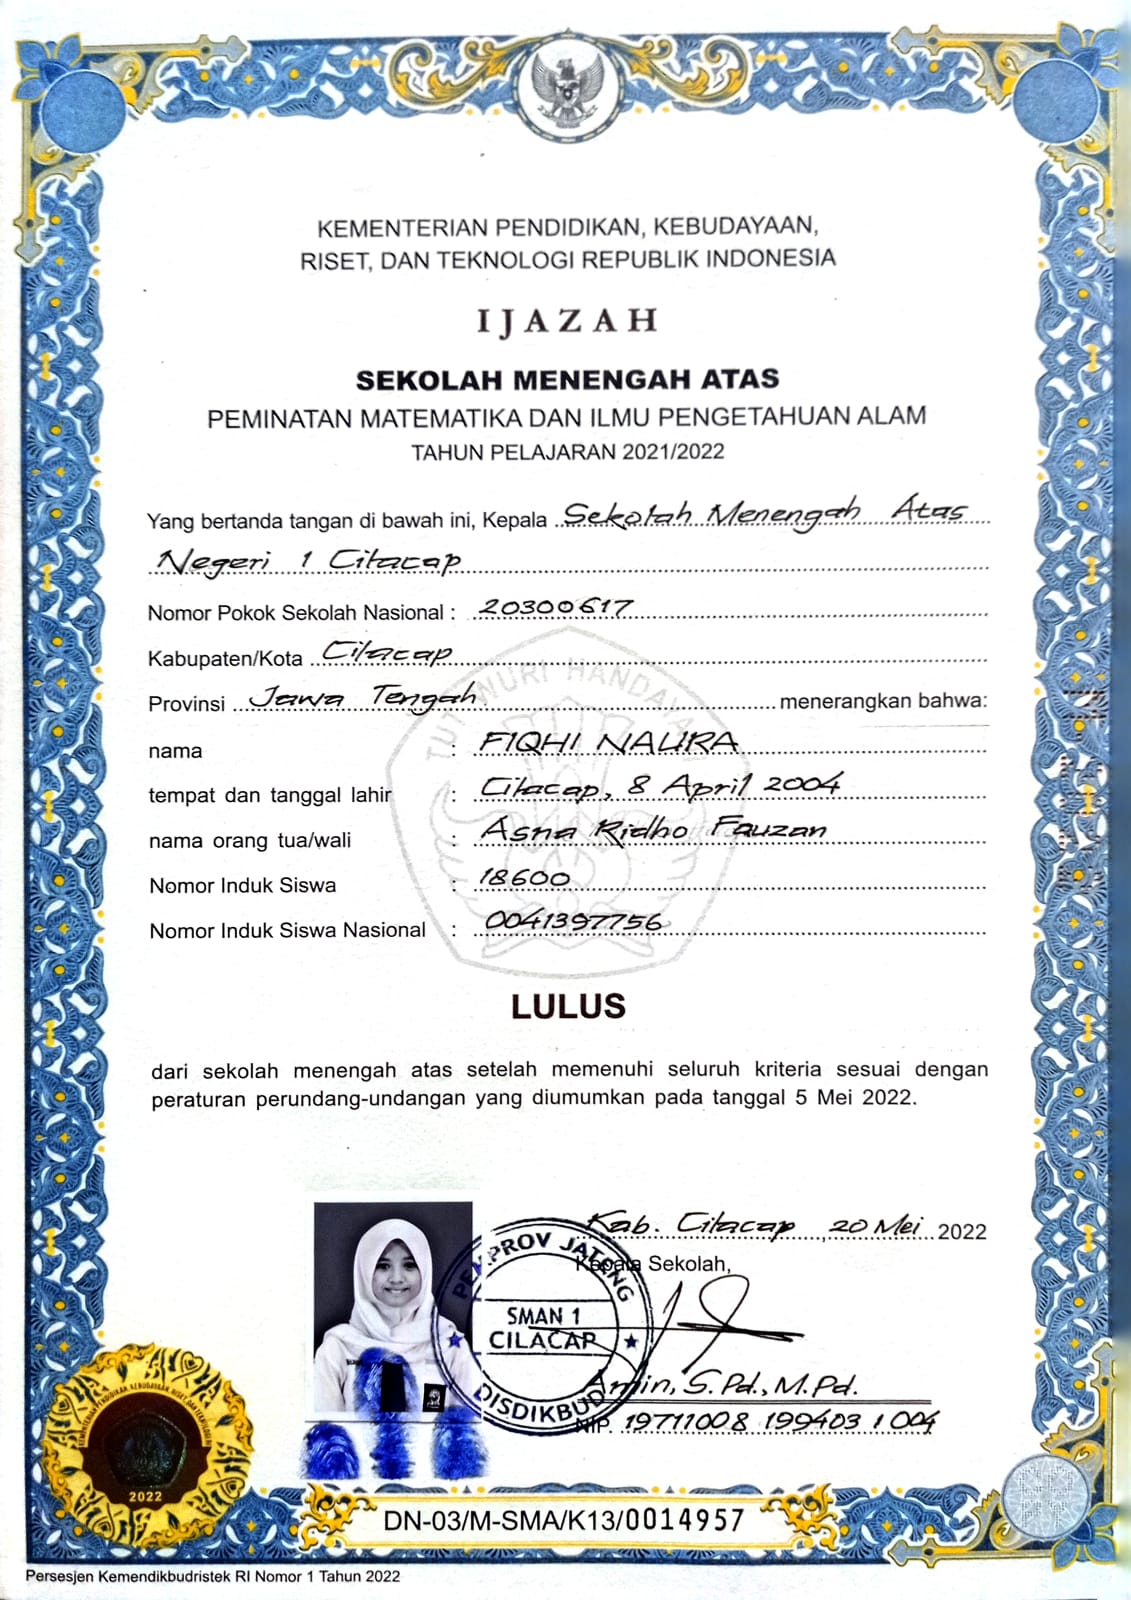 KEMENTERIAN PENDIDIKAN, KEBUDAYAAN,
RISET, DAN TEKNOLOGI REPUBLIK INDONESIA
IJAZAH
SEKOLAH MENENGAH ATAS
PEMINATAN MATEMATIKA DAN ILMU PENGETAHUAN ALAM
TAHUN PELAJARAN 2021/2022
Yang bertanda tangan di bawah ini, Kepala Sekolah Menengah Atas
Negeri 1 Cilacap
Nomor Pokok Sekolah Nasional : 20300617
Kabupaten/Kota Cilacap
Provinsi Jawa Tengah menerangkan bahwa:
TUT WURI HANDAYANI
nama : FIQHI NAURA
tempat dan tanggal lahir : Cilacap, 8 April 2004
nama orang tua/wali : Asna Ridho Fauzan
Nomor Induk Siswa : 18600
Nomor Induk Siswa Nasional : 0041397756
LULUS
dari sekolah menengah atas setelah memenuhi seluruh kriteria sesuai dengan
peraturan perundang-undangan yang diumumkan pada tanggal 5 Mei 2022.
Kab. Cilacap, 20 Mei 2022
Kepala Sekolah,
PEMPROV JATENG
SMAN 1
CILACAP
DISDIKBUD
Amin, S.Pd., M.Pd.
NIP. 19711008 199403 1 004
KEMENTERIAN PENDIDIKAN, KEBUDAYAAN, RISET, DAN TEKNOLOGI
2022
DN-03/M-SMA/K13/0014957
Persesjen Kemendikbudristek RI Nomor 1 Tahun 2022